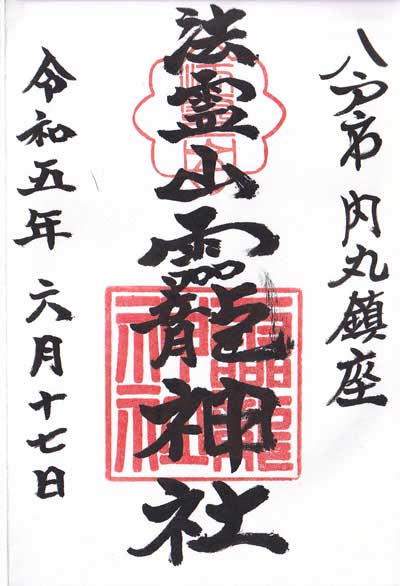 八戸市 内丸鎮座
法霊山龗神社
令和五年 六月十七日